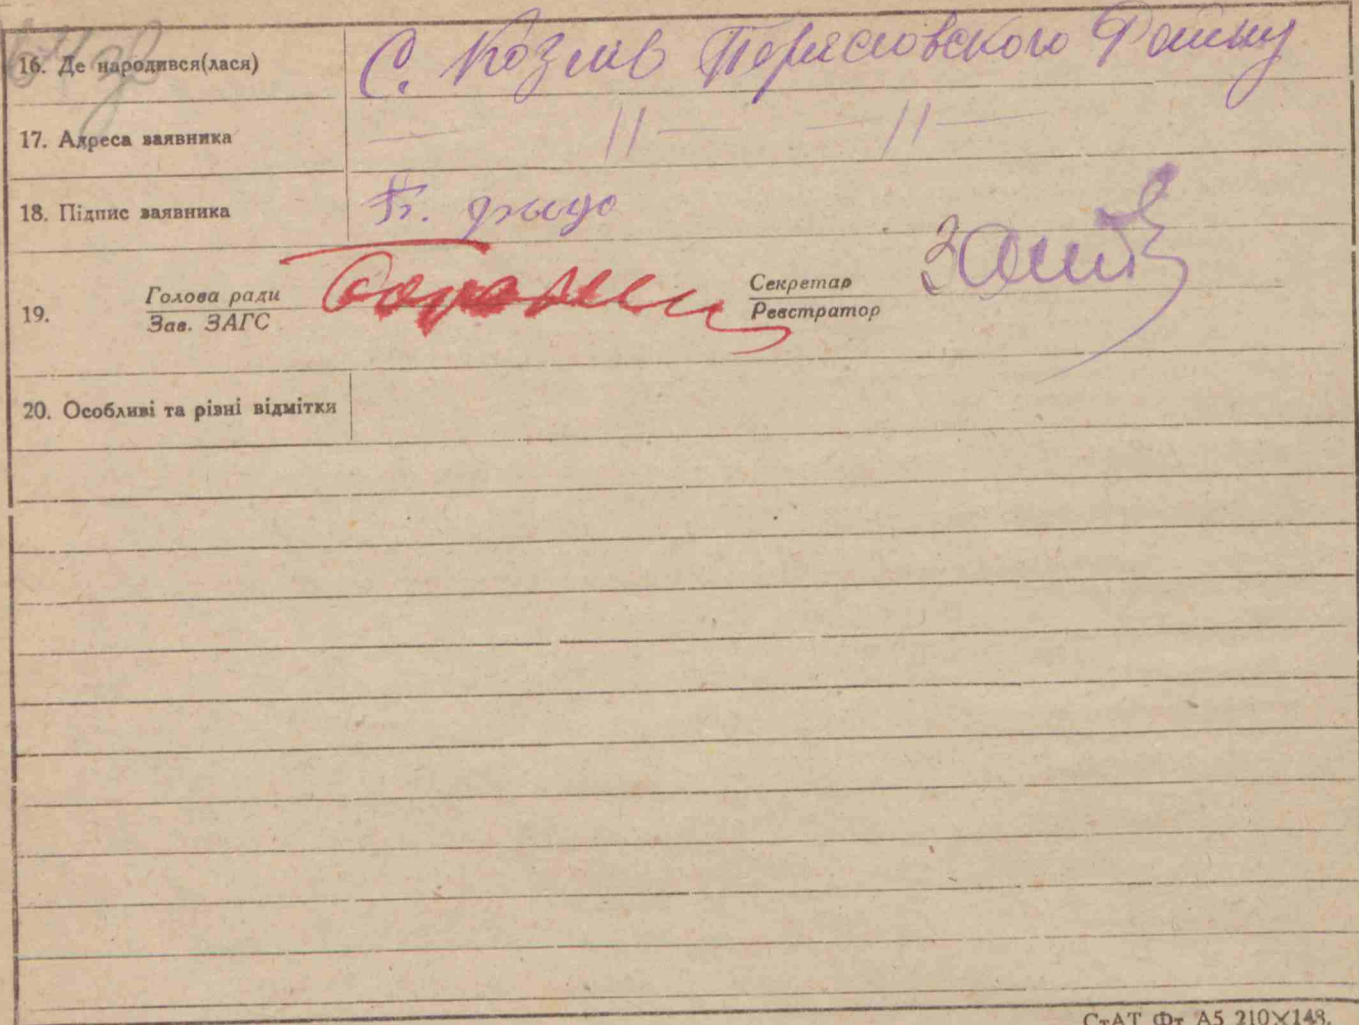 16. Де народився(лася) С. Козлив Переясловского Району
17. Адреса заявника — 11 — — 11 —
18. Підпис заявника
19. Голова ради Секретар
Зав. ЗАГС Реєстратор
20. Особливі та різні відмітки
СтАТ Фт А5 210×148.